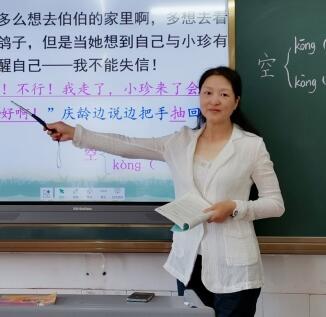 多么想去伯伯的家里啊，多想去看
鸽子，但是当她想到自己与小珍有
醒自己——我不能失信！
！不行！我走了，小珍来了会
好啊！”庆龄边说边把手抽回
空
kòng（
空
kōng（
kòng（